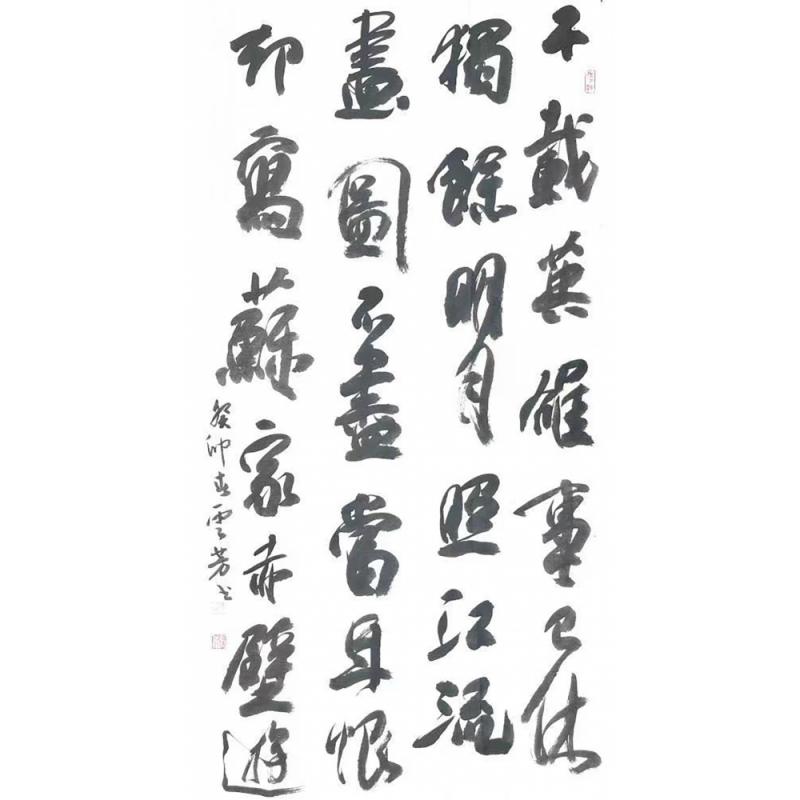 千載英雄事已休
獨餘明月照江流
畫圖不盡當年恨
卻寫蘇家赤壁遊
癸卯春雲芳书